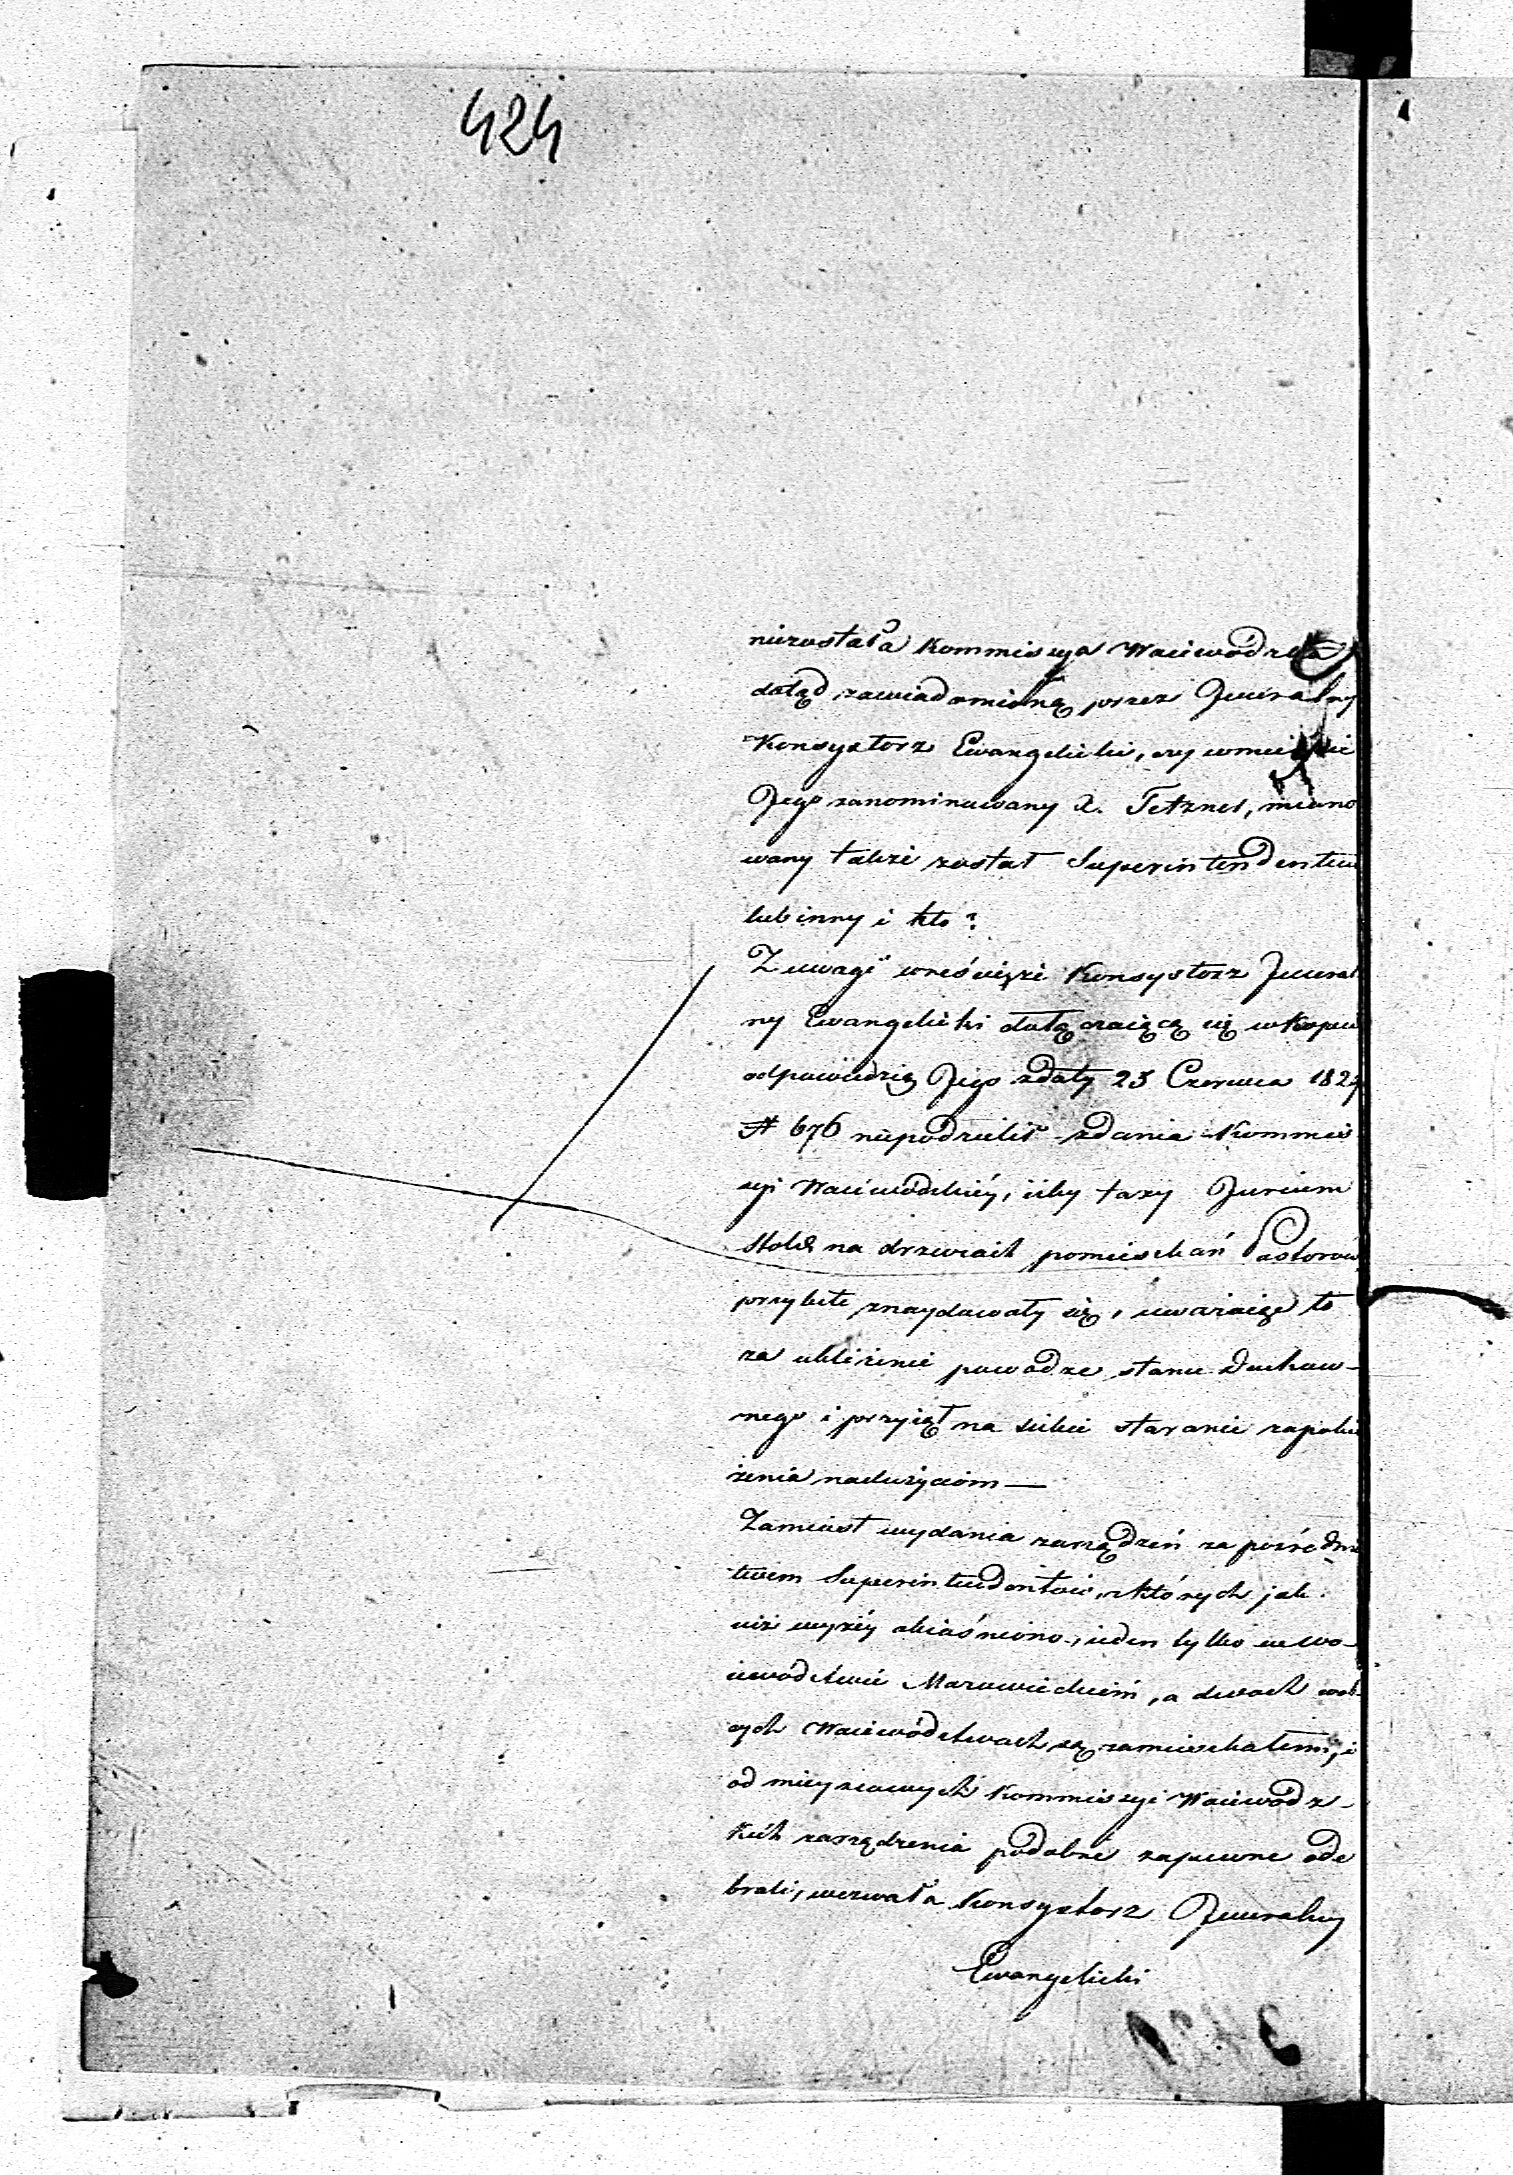 424
niezostała Kommissya Woiewódzka
dotąd zawiadomioną przez Jeneralny
Konsystorz Ewangelicki, czy wmieysce
Jego zanominowany X. Tetzner, miano
wany także został Superintendentem
lub inny i kto?
Z uwagi wreście, że Konsystorz Jeneral
ny Ewangelicki dołączaiącą się w kopii
odpowiedzią Jego zdaty 23 Czerwca 182
N 676 niepodzielił zdania Kommis
syi Woiewódzkiéy, iżby taxy Jurium
Stolæ na drzwiach pomieszkań Pastorów
przybite znaydowały się, uważaiąc to
za ubliżenie powadze stanu Duchow-
nego i przyiął na siebie staranie zapobie
żenia nadużyciom —
Zamiast wydania zarządzeń za pośredni
twem Superintendentów, z których jak
iuż wyżéy obiaśniono, ieden tylko w Wo-
iewództwie Mazowieckiém, a dwóch wob
cych Woiewództwach są zamieszkałemi, i
od mieyscowych Kommissyi Woiewódz-
kich zarządzenia podobne zapewne ode
brali, wezwała Konsystorz Jeneralny
Ewangelicki